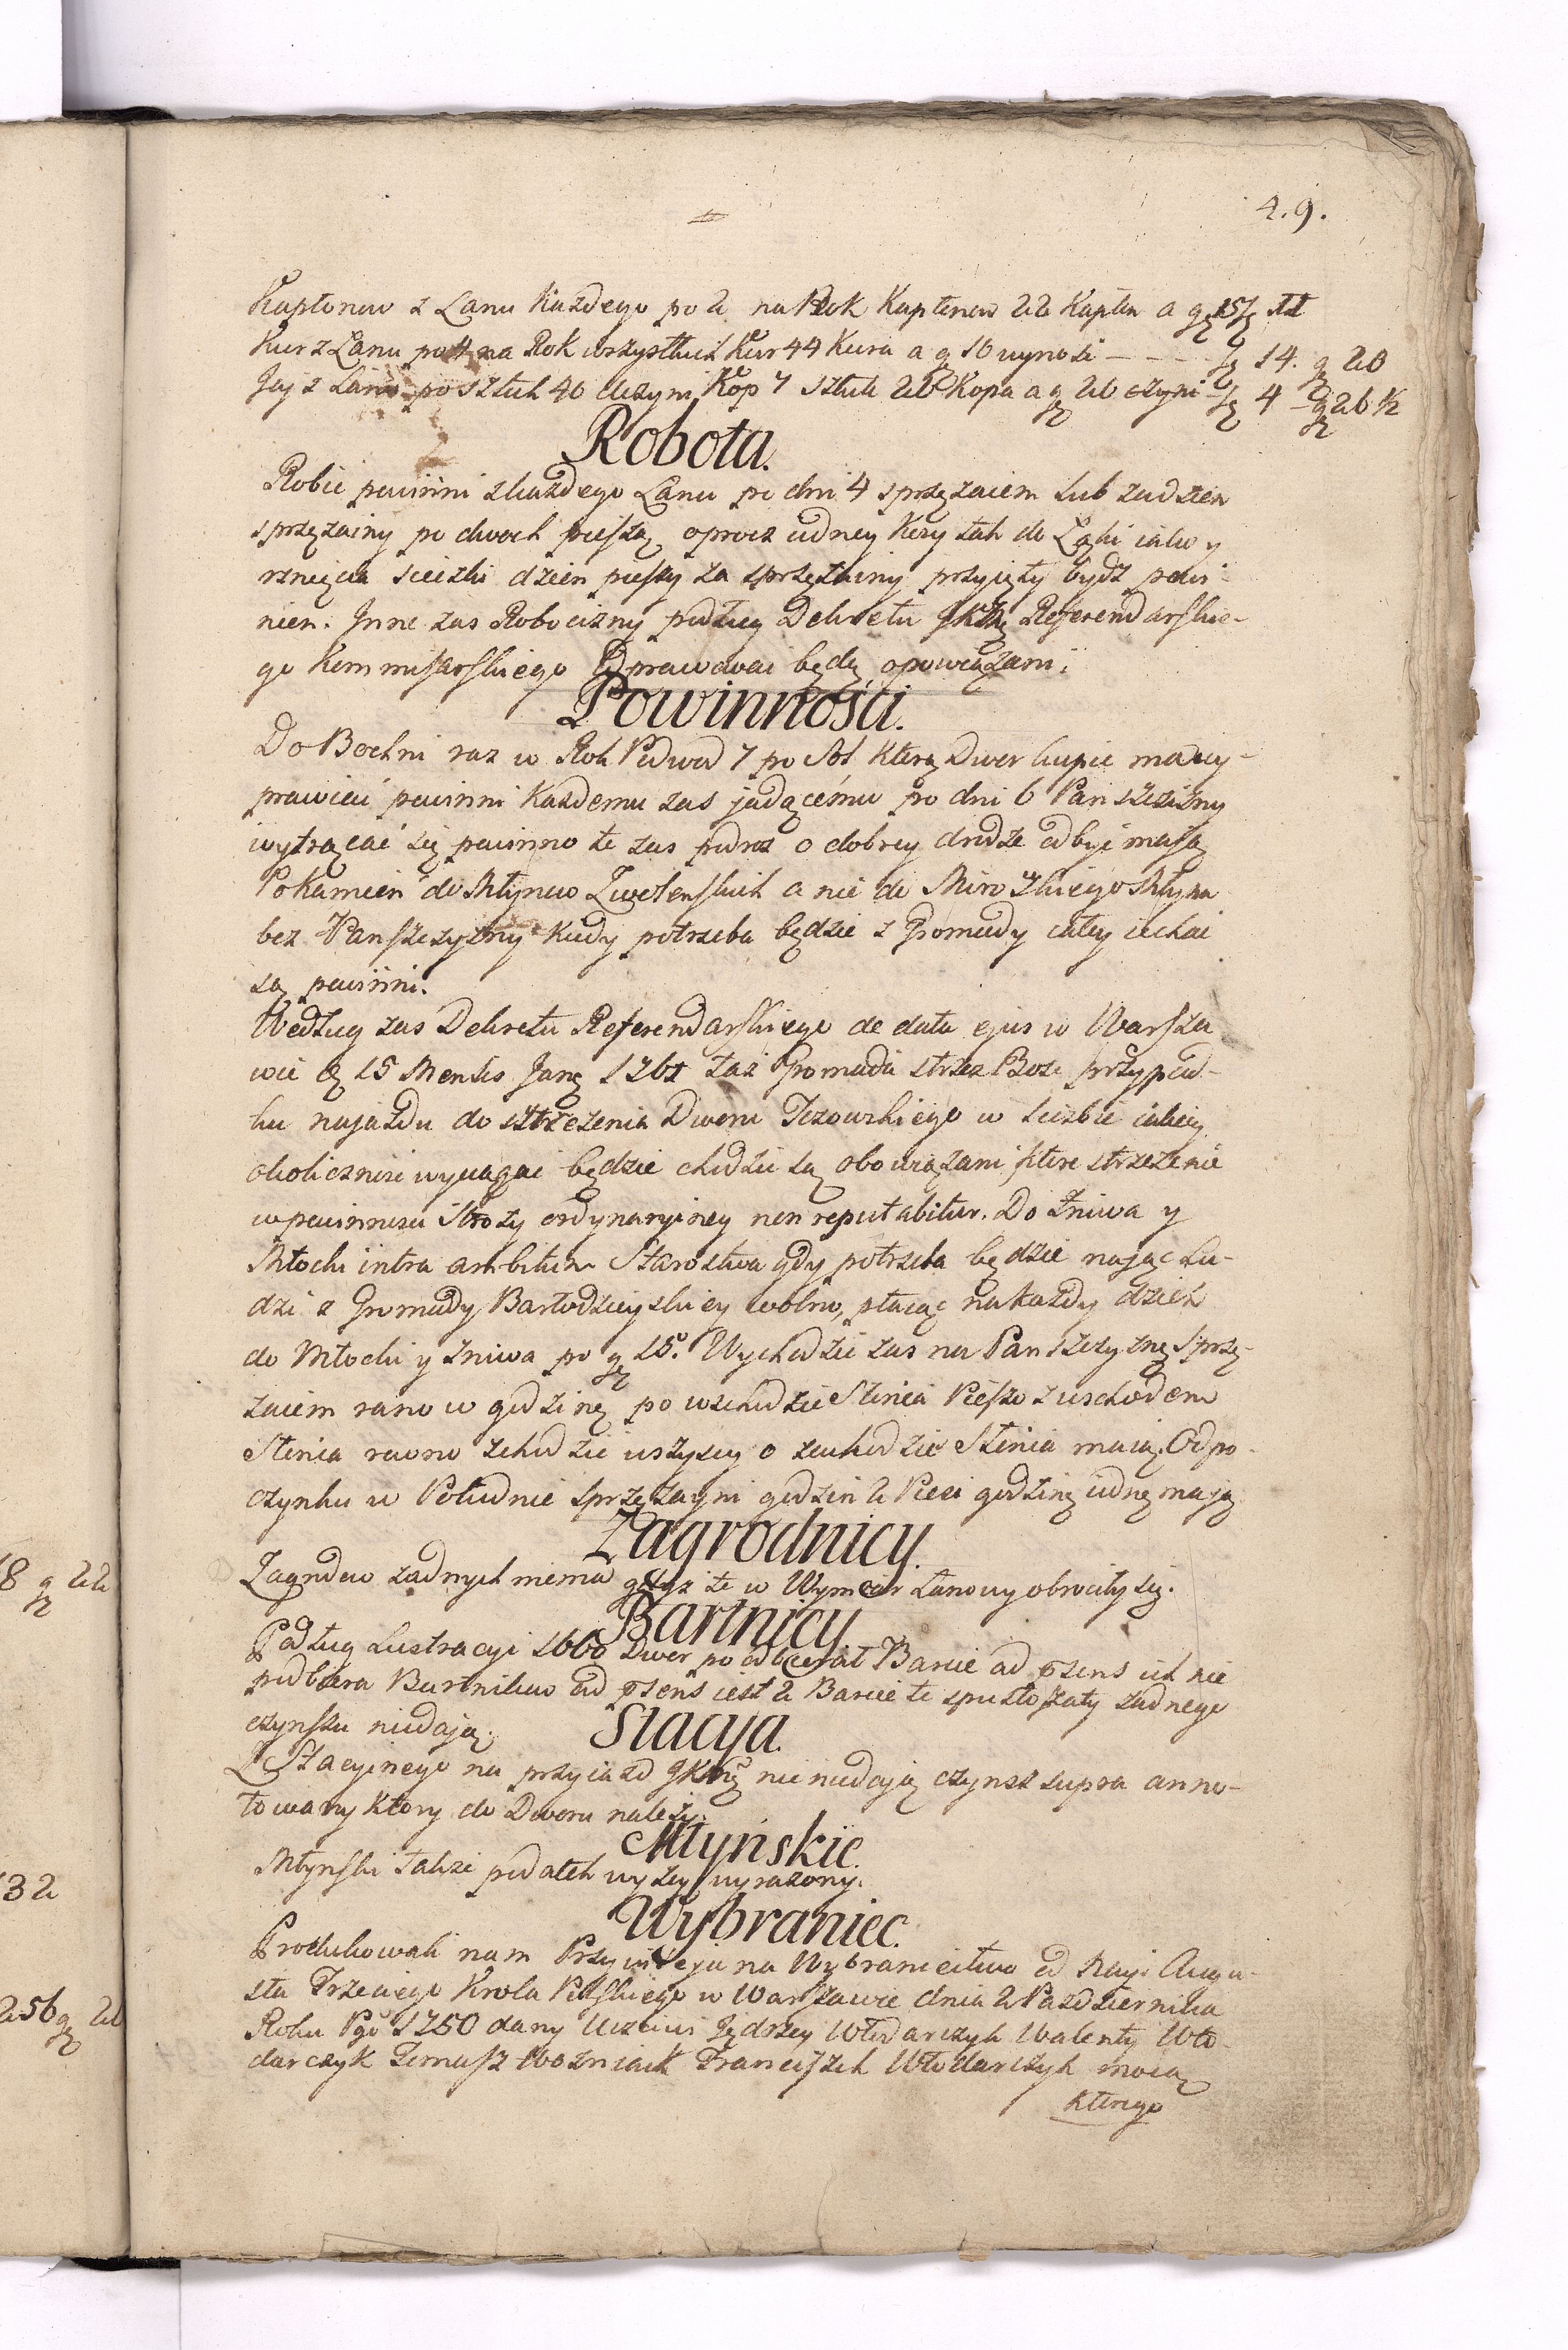 4.9.
Kapłonow z Lanu Każdego po 2 na Rok Kapłonow 22 Kapłon a g 15 fl 11
Kur z Lanu po 4 na Rok wszystkich Kur 44 Kura a g 10 wynosi — — — fl 14. g 20
Jaj z Lanu po sztuk 40 czyni Kop 7 sztuk 20 Kopa a g 20 czyni fl 4 — g 26 ½
Robota.
Robić powinni z każdego Lanu po dni 4 sprzężaiem lub za dzien
sprzężainy po dwoch pieszą oprocz iedney Kozy tak do Łąki iako y
rznięcia sieczki dzien pieszy za sprzężainy przyięty bydz powi-
nien. Inne zas Robocizny podług Dekretu JKMci Referendarskie-
go Kommisarskiego Odprawować będą opowiązani.
Powinności.
Do Bochni raz w Rok Podwod 7 po Sol Ktorą Dwor kupić ma wy-
prawić powinni Każdemu zas jadącemu po dni 6 Panszczizny
wytrącać się powinno te zas podroz o dobrey drodze odbyć mają
Po Kamień do Młynow Zwolenskich a nie do Mirowskiego Młyna
bez Panszczyzny Kiedy potrzeba będzie z Gromady całey iechac
są powinni.
Według zas Dekretu Referendarskiego de data ejus w Warsza
wie d 15 Mensis Jan 1761 taż Gromada strzez Boże przypad-
ku najazdu do strzezenia Dworu Jezowskiego w liczbie iakiey
okolicznosc wyciągać będzie chodzić są obowiązani ktore strzezenie
w powinnosci Stroży ordynaryiney non reputabitur. Do Żniwa y
Młocki intra ambitum Starostwa gdy potrzeba będzie nająć Lu-
dzi z Gromady Bartodzieyskiey wolno, płacąc na każdy dzień
do Młocki y żniwa po g 15. Wychodzić zas na Panszczyznę Sprzę-
żaiem rano w godzinę po wschodzie Słońca Pieszo z wschodem
Słońca rowno zchodzić wszyscy o zachodzie Słońca maią. Odpo-
czynku w Południe sprzężayni godzin 2 Piesi godzinę iednę mają
Zagrodnicy.
Zagrodow żadnych niema gdyż te w Wymiar Łanowy obrociły się.
Bartnicy
Podług Lustracyi 1660 Dwor podbierał Barcie ad psens ich nie
podbiera Bartnikow ad psens iest 2 Barcie te spustoszały żadnego
czynszu niedają.
Stacya.
Stacyinego na przyiazd JKMci nic niedają czynsz supra anno-
towany ktory do Dworu należy.
Młyńskie.
Młynski także podatek wyżey wyrażony.
Wybraniec.
Produkowali nam Przywileja na Wybraniectwo od Nayi Augu-
sta Trzeciego Krola Polskiego w Warszawie dnia 2 Pazdziernika
Roku Pgo 1750 dany Uczciwi Jędrzey Włodarczyk Walenty Wło-
darczyk Tomasz Wozniack Franciszek Włodarczyk mocą
ktorego
18 g 22
132
256 g 20